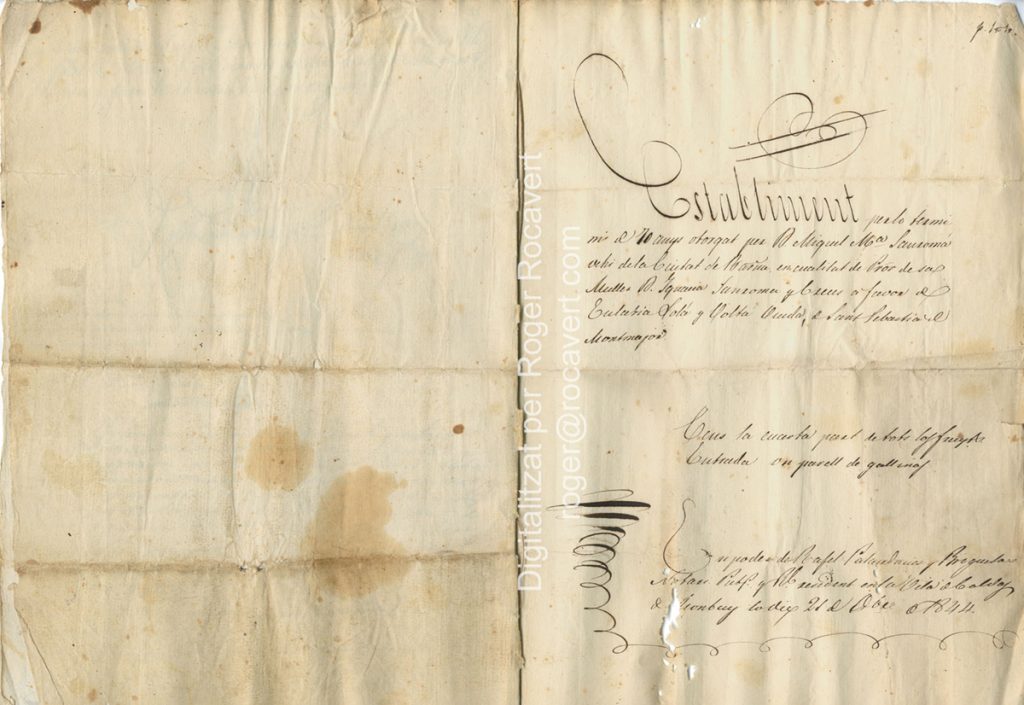 Establiment per lo termi
ni de 70 anys otorgat per D. Miquel Mª Sanromá
vehí de la Ciutat de Barña en cualitat de Pror de sa
Muller Dª Ignacia Sanromá y Creus a favor de
Eulalia Solá y Voltá Viuda, de Sant Sebastiá de
Montmajor
Cens la cuarta part de tots los fruyts
Entrada un parell de gallinas
En poder de Rafel y
Notari Públ y Resident en la Vila de Caldas
de Monbuy lo dia 21 de Obre de 1844.
Digitalitzat per Roger Rocavert
roger@rocavert.com